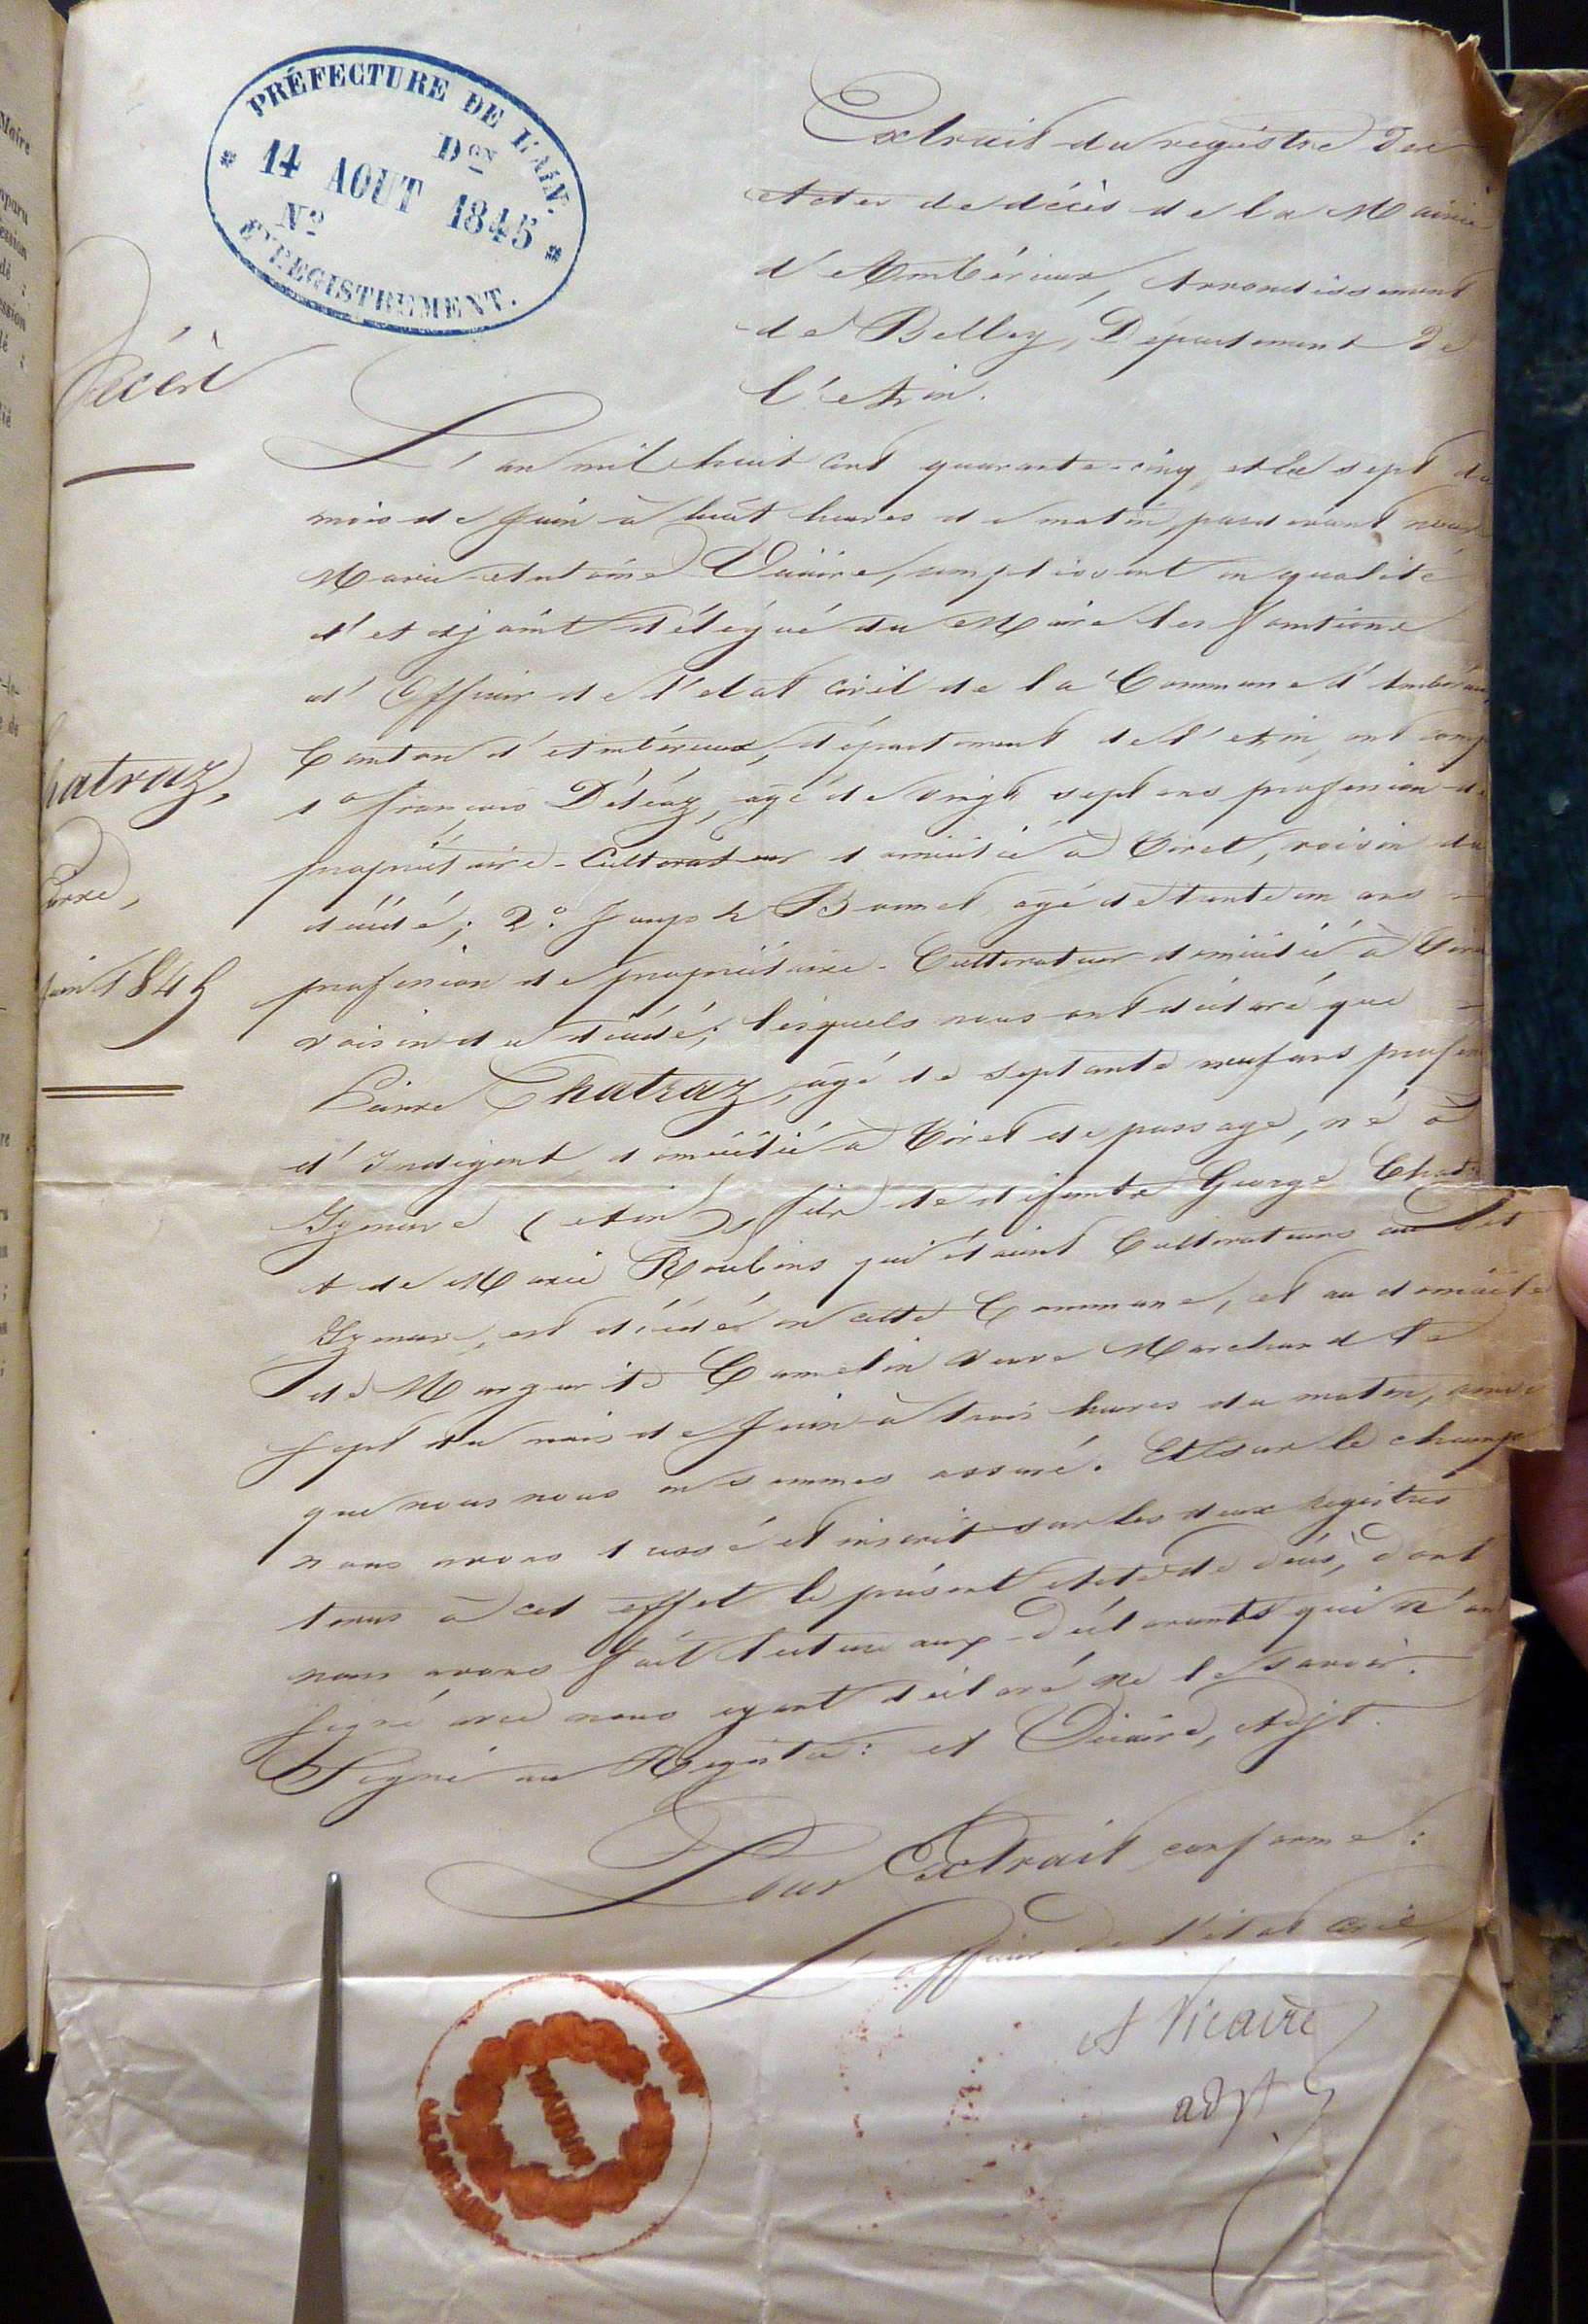 PRÉFECTURE DE L'AIN.
Don
14 AOUT 1845
No
ENREGISTREMENT.
Extrait du registre des
Actes de décès de la Mairie
d'Ambérieux, Arrondissement
de Belley, Département de
l'Ain.
Décès
L'an mil huit cent quarante-cinq, et le sept du
mois de Juin à huit heures de matin, pardevant nous
Marie-Antoine Vicaire, remplissant en qualité
d'Adjoint délégué du Maire les fonctions
d'Officier de l'etat civil de la Commune d'Ambérieux,
Canton d'Ambérieux, département de l'Ain, ont comp
1o françois Déléaz, agé de vingt sept ans profession de
propriétaire-Cultivateur domicilié à Tiret, voisin du
décédé; 2o. Joseph Bonnet agé de trente un ans
profession de propriétaire-Cultivateur domicilié à Tiret
voisin du décédé; lesquels nous ont déclaré que
Pierre Chatraz, agé de septante neuf ans profession
d'Indigent domicilié à Tiret de passage, né à
Izenave (Ain), fils de defunts George Chatraz
et de Marie Roubins qui étaient Cultivateurs audit
Izenave, est décédé en cette Commune, et au domicile
de Margurite Camelin veuve Marchand le
sept du mois de Juin à trois heures du matin, ainsi
que nous nous en sommes assuré. Et sur le champ
nous avons dressé et inscrit sur les deux registres
tenus à cet effet le présent Acte de décès, dont
nous avons fait lecture aux déclarants qui n'ont
signé avec nous ayant déclaré ne le savoir.
Signé au Registre: A Vicaire, Adjt.
Pour Extrait conforme:
L'officier de l'état civil,
A Vicaire
adjt
hatraz,
ierre,
Juin 1845